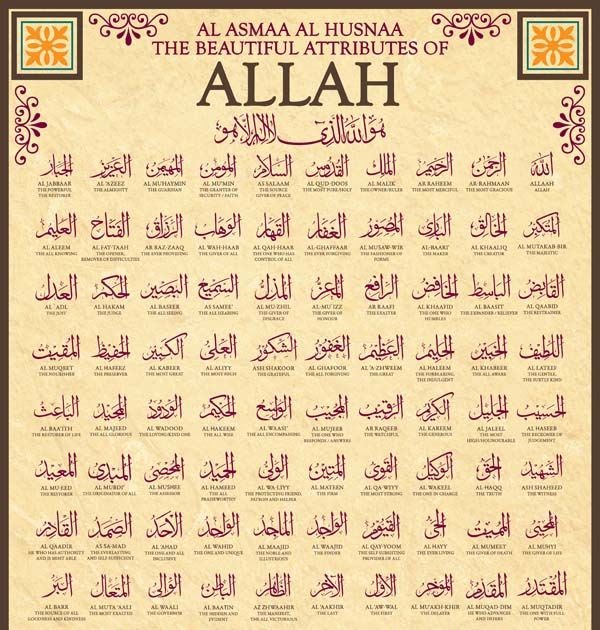 AL ASMAA AL HUSNAA
THE BEAUTIFUL ATTRIBUTES OF
ALLAH
هو الله الذي لا اله الا هو
الله
ALLAAH
ALLAH
الرحمن
AR-RAHMAAN
THE MOST GRACIOUS
الرحيم
AR RAHEEM
THE MOST MERCIFUL
الملك
AL MALIK
THE OWNER/RULER
القدوس
AL QUD-DOOS
THE MOST PURE/HOLY
السلام
AS SALAAM
THE SOURCE
GIVER OF PEACE
المؤمن
AL MU'MIN
THE GRANTER OF
SECURITY / FAITH
المهيمن
AL MUHAYMIN
THE GUARDIAN
العزيز
AL 'AZEEZ
THE ALMIGHTY
الجبار
AL JABBAAR
THE POWERFUL
THE RESTORER
المتكبر
AL MUTAKAB-BIR
THE MAJESTIC
الخالق
AL KHAALIQ
THE CREATOR
البارئ
AL-BAARI'
THE MAKER
المصور
AL MUSAW-WIR
THE FASHIONER OF
FORMS
الغفار
AL-GHAFFAAR
THE EVER FORGIVING
القهار
AL QAH-HAAR
THE ONE WHO HAS
CONTROL OF ALL
الوهاب
AL WAH-HAAB
THE GIVER OF ALL
الرزاق
AR RAZ-ZAAQ
THE EVER PROVIDING
الفتاح
AL FAT-TAAH
THE OPENER,
REMOVER OF DIFFICULTIES
العليم
AL ALEEM
THE ALL KNOWING
القابض
AL QAABID
THE RESTRAINER
الباسط
AL BAASIT
THE EXPANDER / RELIEVER
الخافض
AL KHAAFID
THE ONE WHO
HUMBLES
الرافع
AR RAAFI
THE EXALTER
المعز
AL-MU'IZZ
THE GIVER OF
HONOUR
المذل
AL MU-ZHIL
THE GIVER OF
DISGRACE
السميع
AS SAMEE'
THE ALL HEARING
البصير
AL BASEER
THE ALL SEEING
الحكم
AL HAKAM
THE JUDGE
العدل
AL 'ADL
THE JUST
اللطيف
AL LATEEF
THE GENTLE,
THE SUBTLY KIND
الخبير
AL KHABEER
THE ALL AWARE
الحليم
AL HALEEM
THE FORBEARING,
THE INDULGENT
العظيم
AL 'A-ZHWEEM
THE GREAT
الغفور
AL GHAFOOR
THE ALL FORGIVING
الشكور
ASH SHAKOOR
THE GRATEFUL
العلي
AL ALIYY
THE MOST HIGH
الكبير
AL KABEER
THE MOST GREAT
الحفيظ
AL HAFEEZ
THE PRESERVER
المقيت
AL MUQEET
THE NOURISHER
الحسيب
AL HASEEB
THE RECKONER OF
JUDGEMENT
الجليل
AL JALEEL
THE MOST
HIGH/HOUNOURABLE
الكريم
AL KAREEM
THE GENEROUS
الرقيب
AR RAQEEB
THE WATCHFUL
المجيب
AL MUJEEB
THE ONE WHO
RESPONDS / ANSWERS
الواسع
AL WAASI'
THE ALL ENCOMPASSING
الحكيم
AL HAKEEM
THE ALL WISE
الودود
AL WADOOD
THE LOVING/KIND ONE
المجيد
AL MAJEED
THE ALL GLORIOUS
الباعث
AL BAA'ITH
THE RESTORER OF LIFE
الشهيد
ASH SHAHEED
THE WITNESS
الحق
AL HAQQ
THE TRUTH
الوكيل
AL WAKEEL
THE ONE IN CHARGE
القوى
AL QA-WIYY
THE MOST STRONG
المتين
AL MATEEN
THE FIRM
الولى
AL WA-LIYY
THE PROTECTING FRIEND,
PATRON AND HELPER
الحميد
AL HAMEED
THE ALL
PRAISEWORTHY
المحصى
AL MUHSEE
THE ASSESSOR
المبدئ
AL MUBDI'
THE ORIGINATOR OF ALL
المعيد
AL MU-EED
THE RESTORER
المحيى
AL MUHYI
THE GIVER OF LIFE
المميت
AL MUMEET
THE GIVER OF DEATH
الحي
AL HAYY
THE EVER LIVING
القيوم
AL QAY-YOOM
THE SELF SUBSISTING
PROVIDER OF ALL
الواجد
AL WAAJID
THE FINDER
الماجد
AL MAAJID
THE NOBLE AND
ILLUSTRIOUS
الواحد
AL WAHID
THE ONE AND UNIQUE
الأحد
AL 'AHAD
THE ONE AND ALL
INCLUSIVE
الصمد
AS SA-MAD
THE EVERLASTING
AND SELF-SUFFICIENT
القادر
AL QAADIR
HE WHO HAS AUTHORITY
AND IS MOST ABLE
المقتدر
AL MUQTADIR
THE ONE WITH FULL
POWER
المقدم
AL MUQAD-DIM
HE WHO ADVANCES
AND FORWARDS
المؤخر
AL MU'AKH-KHIR
THE DELAYER
الأول
AL 'AW-WAL
THE FIRST
الآخر
AL 'AAKHIR
THE LAST
الظاهر
AZ ZHWAAHIR
THE MANIFEST,
THE ALL VICTORIOUS
الباطن
AL BAATIN
THE HIDDEN AND
EVIDENT
الوالي
AL WAALI
THE GOVERNOR
المتعال
AL MUTA'AALI
THE MOST EXALTED
البر
AL BARR
THE SOURCE OF ALL
GOODNESS AND KINDNESS